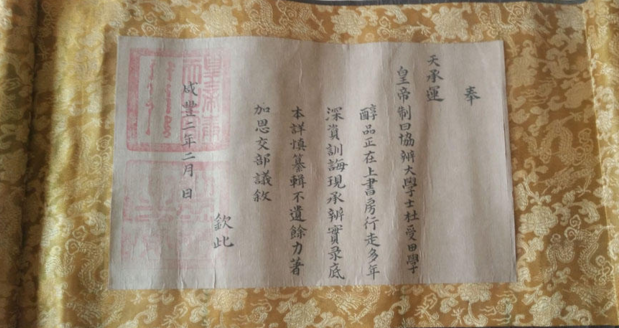 奉
天承運
皇帝制曰協辦大學士杜受田學
醇品正在上書房行走多年
深資訓誨現承辦實录底
本詳慎纂輯不遺餘力著
加恩交部議敘
欽此
咸豐二年二月 日